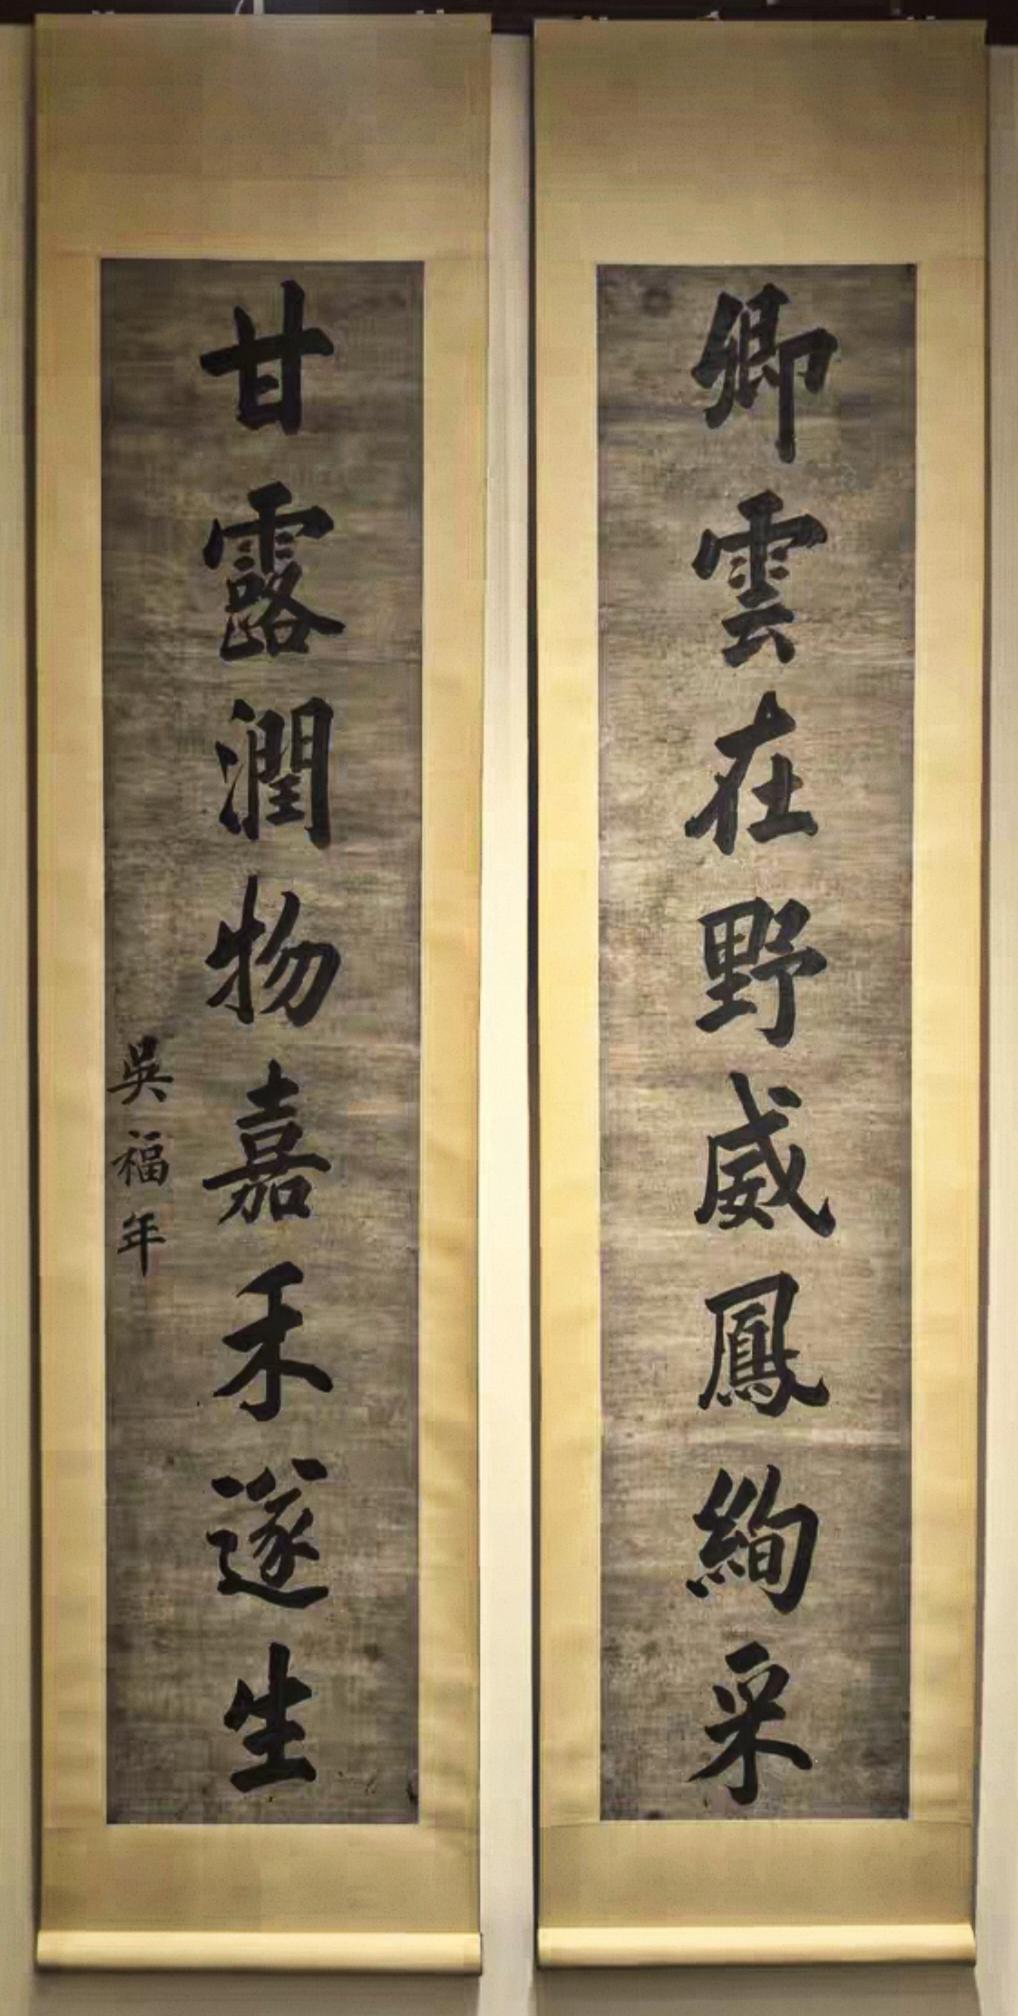 卿雲在野威鳳絢采
甘露潤物嘉禾遂生
吳福年